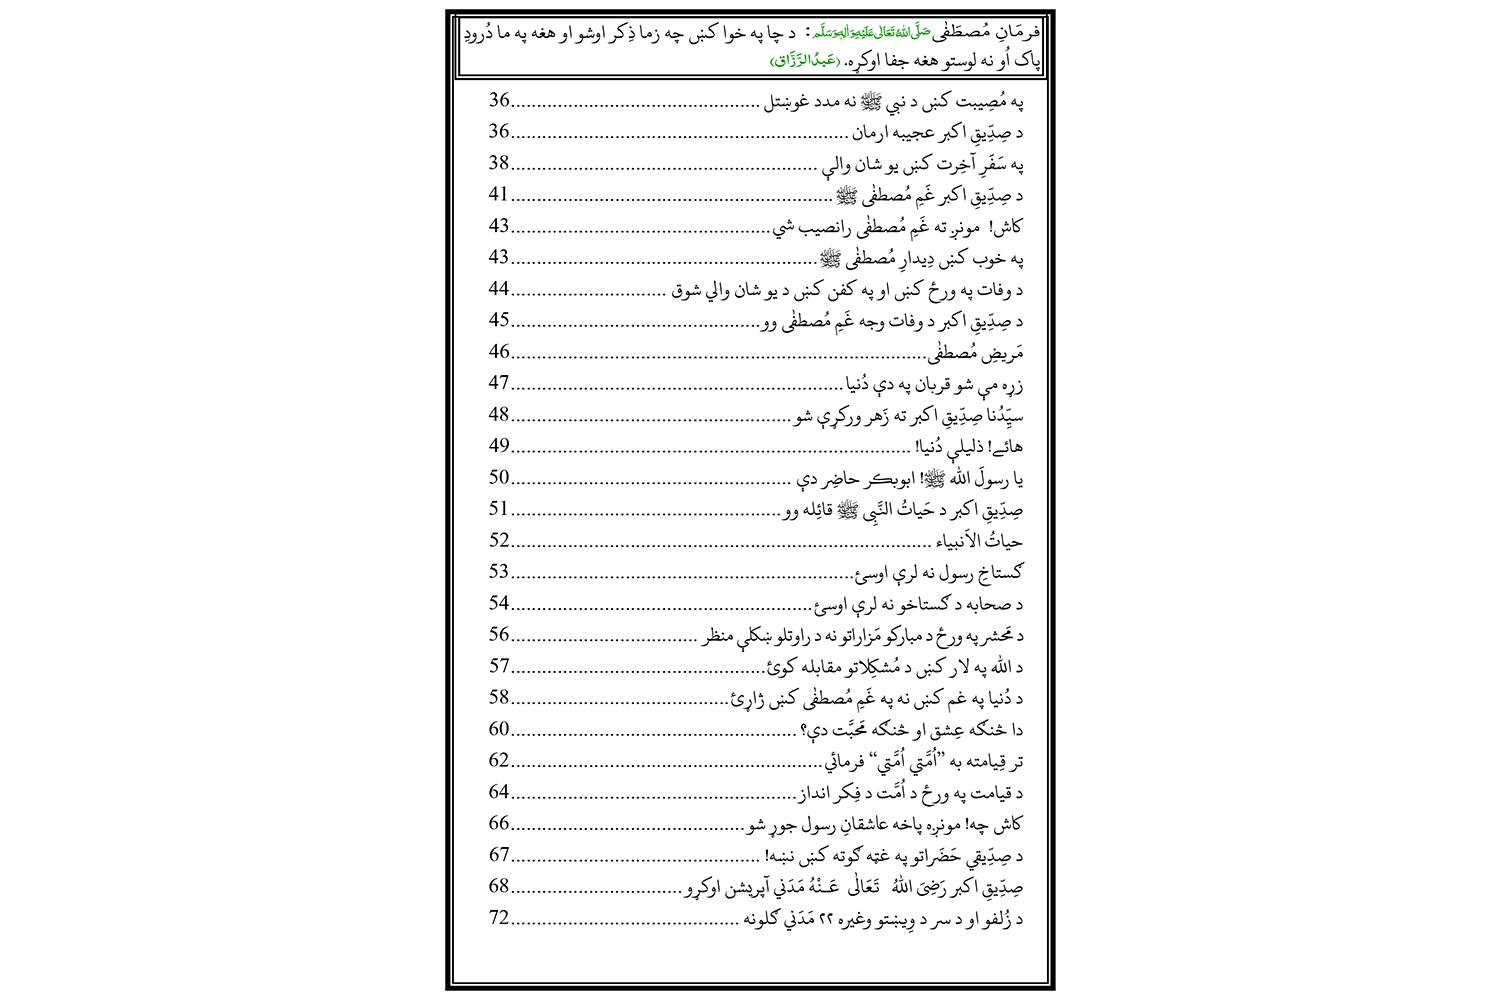 فرمَانِ مُصطَفٰی صَلَّی اللّٰہُ تَعَالٰی عَلَیْہِ وَاٰلِہٖ وَسَلَّم: د چا په خوا کښں چه زما ذِکر اوشو او هغه په ما دُرودِ
پاک اُو نه لوستو هغه جفا اوکړه. (عَبدُ الرَّزَّاق)
په مُصِیبت کښں د نبي ﷺ نه مدد غوښتل ................................................36
د صِدِّیقِ اکبر عجیبه ارمان .................................................................36
په سَفَرِ آخِرت کښں یو شان والې ...........................................................38
د صِدِّیقِ اکبر غَمِ مُصطفٰی ﷺ ..............................................................41
کاش! مونږ ته غَمِ مُصطفٰی رانصیب شي..................................................43
په خوب کښں دِیدارِ مُصطفٰی ﷺ...........................................................43
د وفات په ورځ کښں او په کفن کښں د یو شان والي شوق ..............................44
د صِدِّیقِ اکبر د وفات وجه غَمِ مُصطفٰی وو................................................45
مَریضِ مُصطفٰی................................................................................46
زړه مې شو قربان په دې دُنیا................................................................47
سیِّدُنا صِدِّیقِ اکبر ته زَهر ورکړې شو ......................................................48
هائے! ذلیلې دُنیا! .............................................................................49
یا رسولَ الله ﷺ! ابوبکر حاضِر دې ......................................................50
صِدِّیقِ اکبر د حَیاتُ النَّبِی ﷺ قائِله وو....................................................51
حیاتُ الاَنبیاء .................................................................................52
ګستاخِ رسول نه لرې اوسئ..................................................................53
د صحابه د ګستاخو نه لرې اوسئ..........................................................54
د مَحشر په ورځ د مبارکو مَزاراتو نه د راوتلو ښکلې منظر ....................................56
د الله په لار کښں د مُشکِلاتو مقابله کوئ.................................................57
د دُنیا په غم کښں نه په غَمِ مُصطفٰی کښں ژاړئ..........................................58
دا څنګه عِشق او څنګه مَحبَّت دې؟ .......................................................60
تر قِیامته به ”اُمَّتي اُمَّتي“ فرمائي............................................................62
د قیامت په ورځ د اُمَّت د فِکر انداز.......................................................64
کاش چه! مونږه پاخه عاشقانِ رسول جوړ شو.............................................66
د صِدِّیقي حَضَراتو په غټه ګوته کښں نښه! ................................................67
صِدِّیقِ اکبر رَضِیَ اللّٰہُ تَعَالٰی عَـنْهُ مَدَني آپریشن اوکړو.................................68
د زُلفو او د سر د وِیښتو وغیره ۲۲ مَدَني ګلونه ............................................72